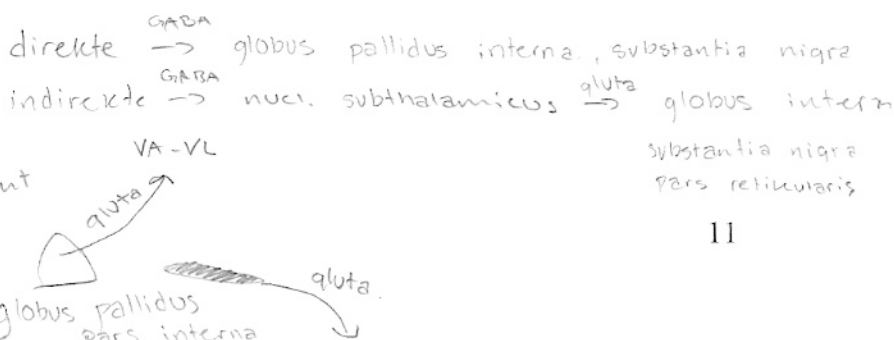 GABA
direkte → globus pallidus interna, substantia nigra
GABA
indirekte → nucl. subthalamicus gluta → globus intern
substantia nigra
pars reticularis
VA-VL
nt
gluta
11
gluta
globus pallidus
pars interna